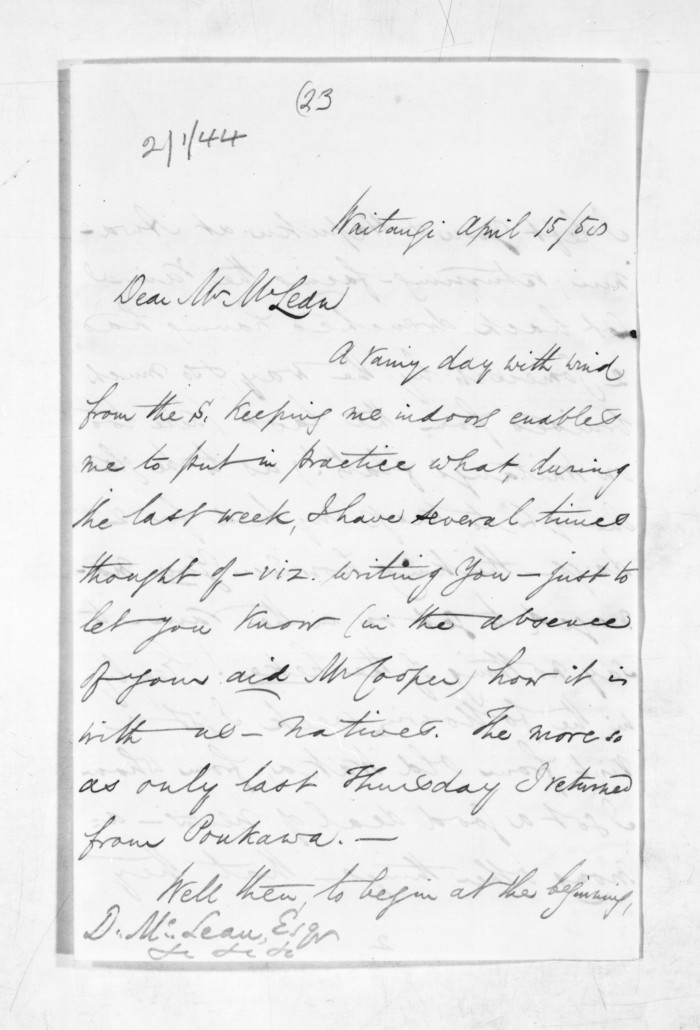 (23
2/1/44
Waitangi April 15/58
Dear Mr McLean
A rainy day with wind
from the S. keeping me indoors enables
me to put in practice what, during
the last week, I have several times
thought of – viz. writing You – just to
let you know (in the absence
of your aid Mr Cooper) how it is
with us – natives. The more so
as only last Thursday I returned
from Poukawa. —
Well then, to begin at the beginning,
D. McLean, Esqr
&c &c &c